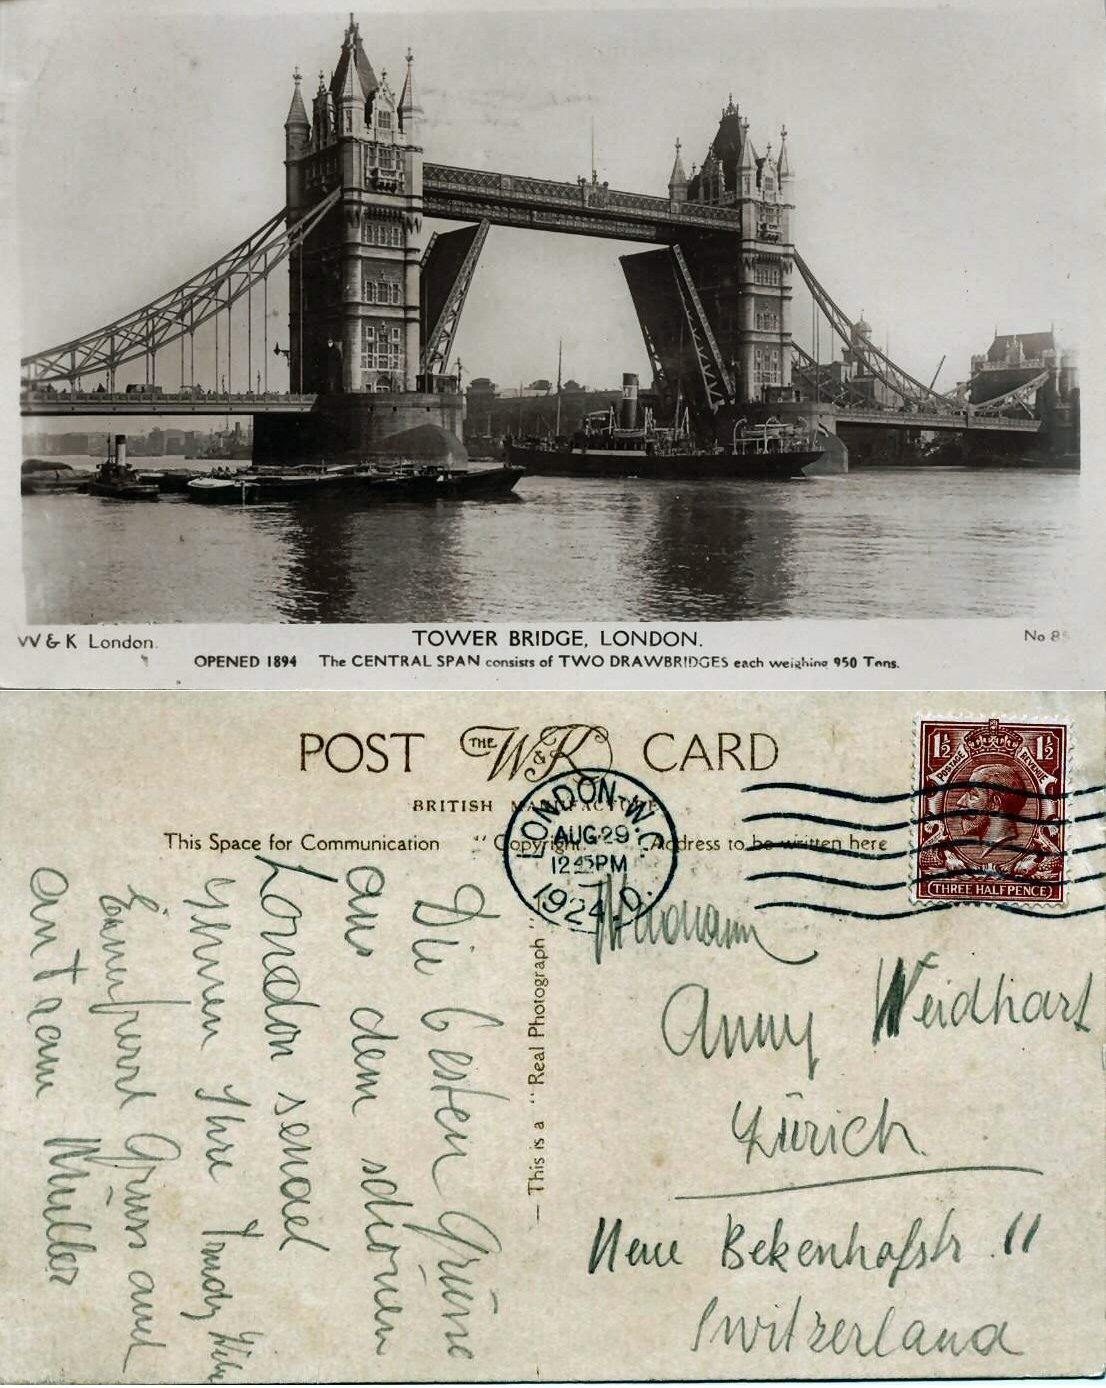 W & K London.
TOWER BRIDGE, LONDON.
No 85
OPENED 1894 The CENTRAL SPAN consists of TWO DRAWBRIDGES each weighing 950 Tons.
POST THE W&K CARD
BRITISH MANUFACTURE
This Space for Communication
"Copyright" Address to be written here
LONDON.W.C.
AUG 29
12 45 PM
1924.D.
1½ 1½
POSTAGE REVENUE
THREE HALFPENCE
— This is a "Real Photograph"
Die besten Grüsse
aus dem schönen
London sendet
Ihnen Ihre Trudy
Gruss auch
Müller
Anny Weidhart
Zürich
Neue Bekenhofstr. 11
Switzerland